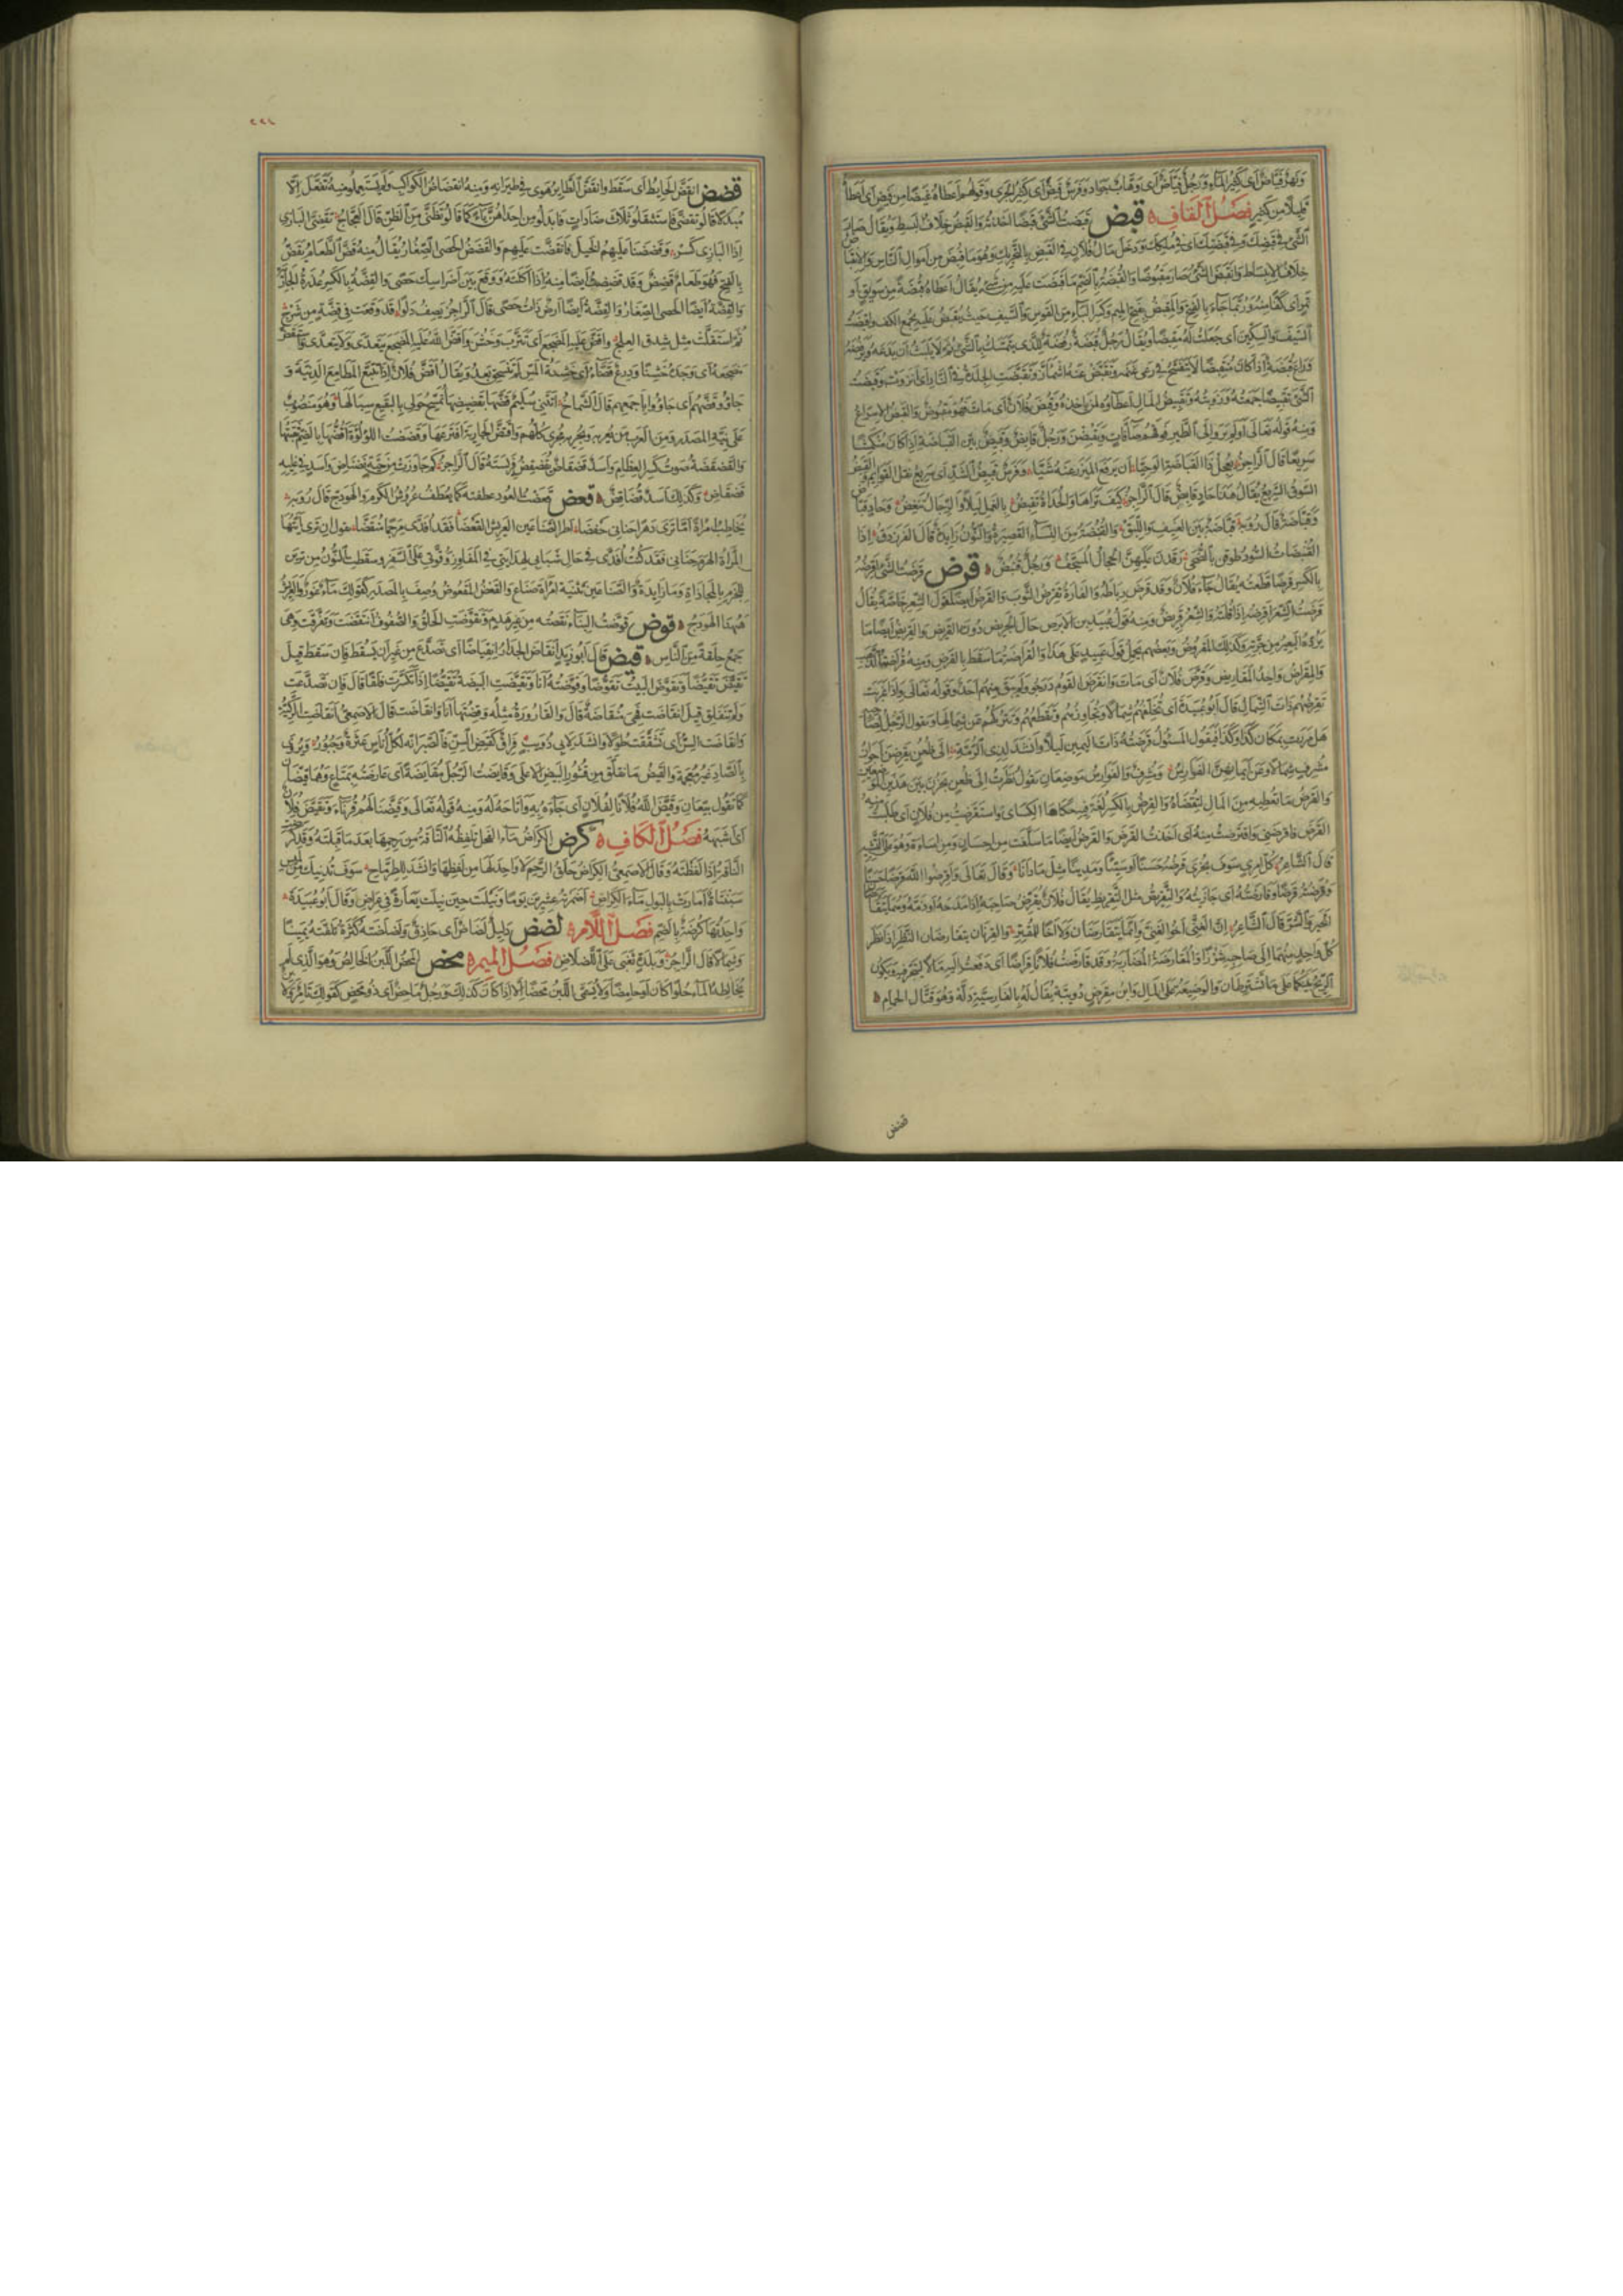 ونهر فياض أي كثير الماء ورجل فياض أي وهاب جواد وفرس فيض أي كثير الجري وقولهم أعطاه غيضا من فيض أي أعطاه
قليلا من كثير فصل القاف قبض قبضت الشئ قبضا أخذته والقبض خلاف البسط ويقال صار
الشئ في قبضك وفي قبضتك أي في ملكك ودخل مال فلان في القبض بالتحريك وهو ما قبض من أموال الناس والانقباض
خلاف الانبساط وانقبض الشئ صار مقبوضا والقبضة بالضم ما قبضت عليه من شئ يقال أعطاه قبضة من سويق أو
تمر أي كفا منه وربما جاء بالفتح والمقبض بفتح الميم وكسر الباء من القوس والسيف حيث يقبض عليه بجمع الكف وأقبضت
السيف والسكين أي جعلت له مقبضا ويقال رجل قبضة رفضة للذي يتمسك بالشئ ثم لا يلبث أن يدعه ويرفضه
وراع قبضة إذا كان منقبضا لا يتفسح في رعي غنمه وتقبض عنه اشمأز وتقبضت الجلدة في النار أي انزوت وقبضت
الشئ تقبيضا جمعته وزويته وتقبيض المال إعطاؤه لمن يأخذه وقبض فلان أي مات فهو مقبوض والقبض الإسراع
ومنه قوله تعالى أولم يروا إلى الطير فوقهم صافات ويقبضن ورجل قابض وقبيض بين القباضة إذا كان منكمشا
سريعا قال الراجز يعجل ذا القباضة الوحيا أن يرفع الميزر عنه شيا وفرس قبيض الشد أي سريع نقل القوائم والقبض
السوق السريع يقال هذا حاد قابض قال الراجز كيف تراها والحداة تقبض بالغمل ليلا والرجال تنغض وحاد قباض
وقباضة قال رؤبة قباضة بين العنيف واللبق والقنبضة من النساء القصيرة والنون زايدة قال الفرزدق إذا
القنبضات السود طوفن بالضحى رقدن عليهن الحجال المسجف ورجل قنبض قرض قرضت الشئ أقرضه
بالكسر قرضا قطعته يقال جاء فلان وقد قرض رباطه والفارة تقرض الثوب والقرض أيضا قول الشعر خاصة يقال
قرضت الشعر أقرضه إذا قلته والشعر قريض ومنه قول عبيد بن الأبرص حال الجريض دون القريض والقريض أيضا ما
يرده البعير من جرته وكذلك المقروض وبعضهم يحمل قول عبيد على هذا والقراضة ما سقط بالقرض ومنه قراضة الذهب
والمقراض واحد المقاريض وقرض فلان أي مات وانقرض القوم درجوا ولم يبق منهم أحد وقوله تعالى وإذا غربت
تقرضهم ذات الشمال قال أبو عبيدة أي تخلفهم شمالا وتجاوزهم وتقطعهم وتتركهم عن شمالها ويقول الرجل لصاحبه
هل مررت بمكان كذا وكذا فيقول المسئول قرضته ذات اليمين ليلا وأنشد لذي الرمة إلى ظعن يقرضن أجواز
مشرف شمالا وعن أيمانهن الفوارس ومشرف والفوارس موضعان يقول نظرت إلى ظعن يجزن بين هذين الموضعين
والقرض ما تعطيه من المال لتقضاه والقرض بالكسر لغة فيه حكاها الكسائي واستقرضت من فلان أي طلبت منه
القرض فأقرضني واقترضت منه أي أخذت القرض والقرض أيضا ما سلفت من إحسان ومن إساءة وهو على التشبيه
قال الشاعر كل امرئ سوف يجزى قرضه حسنا أو سيئا ومدينا مثل ما دانا وقال تعالى وأقرضوا الله قرضا حسنا
وقرضته قرضا وقارضته أي جازيته والتقريض مثل التقريظ يقال فلان يقرض صاحبه إذا مدحه أو ذمه وهما يتقارضان
الخير والشر قال الشاعر إن الغني أخو الغني وإنما يتقارضان ولا أخا للمقتر والقرنان يتقارضان النظر إذا نظر
كل واحد منهما إلى صاحبه شزرا والمقارضة المضاربة وقد قارضت فلانا قراضا أي دفعت إليه مالا ليتجر فيه ويكون
الربح بينكما على ما تشترطان والوضيعة على المال وابن مقرض دويبة يقال له بالفارسية دله وهو قتال الحمام
قضض
٢٢٤
قضض انقض الحايط أي سقط وانقض الطاير هوى في طيرانه ومنه انقضاض الكواكب ولم يستعملوا منه تفعل إلا
مبدلا قالوا تقضى فاستثقلوا ثلاث ضادات فابدلوا من إحداهن ياء كما قالوا تظنى من الظن قال العجاج تقضي البازي
إذا البازي كسر وقضضنا عليهم الخيل فانقضت عليهم والقضض الحصى الصغار يقال منه قض الطعام يقض
بالفتح فهو طعام قضض وقد قضضت أيضا منه إذا أكلته ووقع بين أضراسك حصى والقضة بالكسر عذرة الجارية
والقضة أيضا الحصى الصغار والقضة أيضا أرض ذات حصى قال الراجز يصف دلوا قد وقعت في قضة من شرج
ثم استقلت مثل شدق العلج وأقض عليه المضجع أي تترب وخشن وأقض الله عليه المضجع يتعدى ولا يتعدى واستقض
مضجعه أي وجده خشنا ودرع قضاء أي خشنة المس لم تنسحق بعد ويقال أقض فلان إذا تتبع المطامع الدنية و
جاؤوا قضهم أي جاؤوا بأجمعهم قال الشماخ أتتني سليم قضها بقضيضها تمسح حولي بالبقيع سبالها وهو منصوب
على نية المصدر ومن العرب من يعربه ويجريه مجرى كلهم واقتض الجارية افترعها وقضضت اللؤلؤة أقضها بالضم ثقبتها
والقضقضة صوت كسر العظام وأسد قضقاض يقضقض فريسته قال الراجز كم جاوزت من حية نضناض وأسد في غيله
قضقاض وكذلك أسد قضاقض قعض قعضت العود عطفته كما يعطف عروش الكرم والهودج قال رؤبة
يخاطب امرأة أما تري دهرا حناني حفضا أطر الصناعين العريش القعضا فقد أفدى مرجما منقضا يقول إن تري أيتها
المرأة الهرم حناني فقد كنت أفدى في حال شبابي بهدايتي في المفاوز وقوتي على السفر وسقطت النون من ترين
للجزم بالمجازاة وما زايدة والصناعين تثنية امرأة صناع والقعض المقعوض وصف بالمصدر كقولك ماء غور والعريش
ههنا الهودج قوض قوضت البناء نقضته من غير هدم وتقوضت الحلق والصفوف انتقضت وتفرقت وهي
جمع حلقة من الناس قيض قال أبو زيد انقاض الجدار انقياضا أي تصدع من غير أن يسقط فإن سقط قيل
تقيض تقيضا وتقوض البيت تقوضا وقوضته أنا وتقيضت البيضة تقيضا إذا تكسرت فلقا قال فإن تصدعت
ولم تنفلق قيل انقاضت فهي منقاضة قال والقارورة مثله وقضتها أنا وانقاضت قال الأصمعي انقاضت الركية
وانقاضت السن أي تشققت طولا وأنشد لأبي ذؤيب فراق كقيض السن فالصبر إنه لكل أناس عثرة وجبور ويروى
بالصاد غير معجمة والقيض ما تفلق من قشور البيض الأعلى وقايضت الرجل مقايضة أي عارضته بمتاع وهما قيضان
كما تقول بيعان وقيض الله فلانا لفلان أي جاءه به وأتاحه له ومنه قوله تعالى وقيضنا لهم قرناء وتقيض فلان
أباه أي أشبهه فصل الكاف كرض الكراض ماء الفحل تلفظه الناقة من رحمها بعد ما قبلته وقد كرضت
الناقة إذا لفظته وقال الأصمعي الكراض حلق الرحم لا واحد لها من لفظها وأنشد للطرماح سوف تدنيك من لميس
سبنتاة أمارت بالبول ماء الكراض أضمرته عشرين يوما ونيلت حين نيلت يعارة في عراض وقال أبو عبيدة
واحدتها كرضة بالضم فصل اللام لضض دليل لضلاض أي حاذق ولضلضته كثرة تلفته يمينا
وشمالا قال الراجز وبلدة تغبى على اللضلاض فصل الميم محض المحض اللبن الخالص وهو الذي لم
يخالطه الماء حلوا كان أو حامضا ولا يسمى اللبن محضا إلا إذا كان كذلك ورجل ماحض أي ذو محض كقولك تامر ولابن